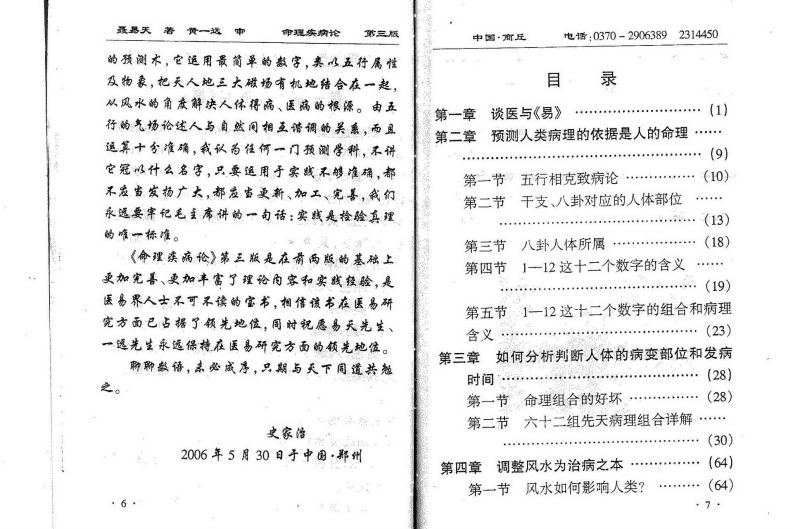 聂易天 著 黄一迅 审 命理疾病论 第三版
的预测术，它运用最简单的数字，类以五行属性
及物象，把天人地三大磁场有机地结合在一起，
从风水的角度解决人体得病、医病的根源。由五
行的气场论述人与自然间相互谐调的关系，而且
运算十分准确，我认为任何一门预测学科，不讲
它冠以什么名字，只要运用于实践不够准确，都
不应当发扬广大，都应当更新、加工、完善，我们
永远要牢记毛主席讲的一句话：实践是检验真理
的唯一标准。
《命理疾病论》第三版是在前两版的基础上
更加完善、更加丰富了理论内容和实践经验，是
医易界人士不可不读的宝书，相信该书在医易研
究方面已占据了领先地位，同时祝愿易天先生、
一迅先生永远保持在医易研究方面的领先地位。
聊聊数语，未必成序，只期与天下同道共勉
之。
史家治
2006年5月30日于中国·郑州
·6·
中国·商丘 电话：0370－2906389 2314450
目 录
第一章 谈医与《易》 …………………… (1)
第二章 预测人类病理的依据是人的命理 ……
…………………………………… (9)
第一节 五行相克致病论 ……………… (10)
第二节 干支、八卦对应的人体部位 ……
…………………………………… (13)
第三节 八卦人体所属 ………………… (18)
第四节 1—12这十二个数字的含义 ……
…………………………………… (19)
第五节 1—12这十二个数字的组合和病理
含义 …………………………… (23)
第三章 如何分析判断人体的病变部位和发病
时间 …………………………… (28)
第一节 命理组合的好坏 ……………… (28)
第二节 六十二组先天病理组合详解 ……
…………………………………… (30)
第四章 调整风水为治病之本 …………… (64)
第一节 风水如何影响人类？ ………… (64)
·7·